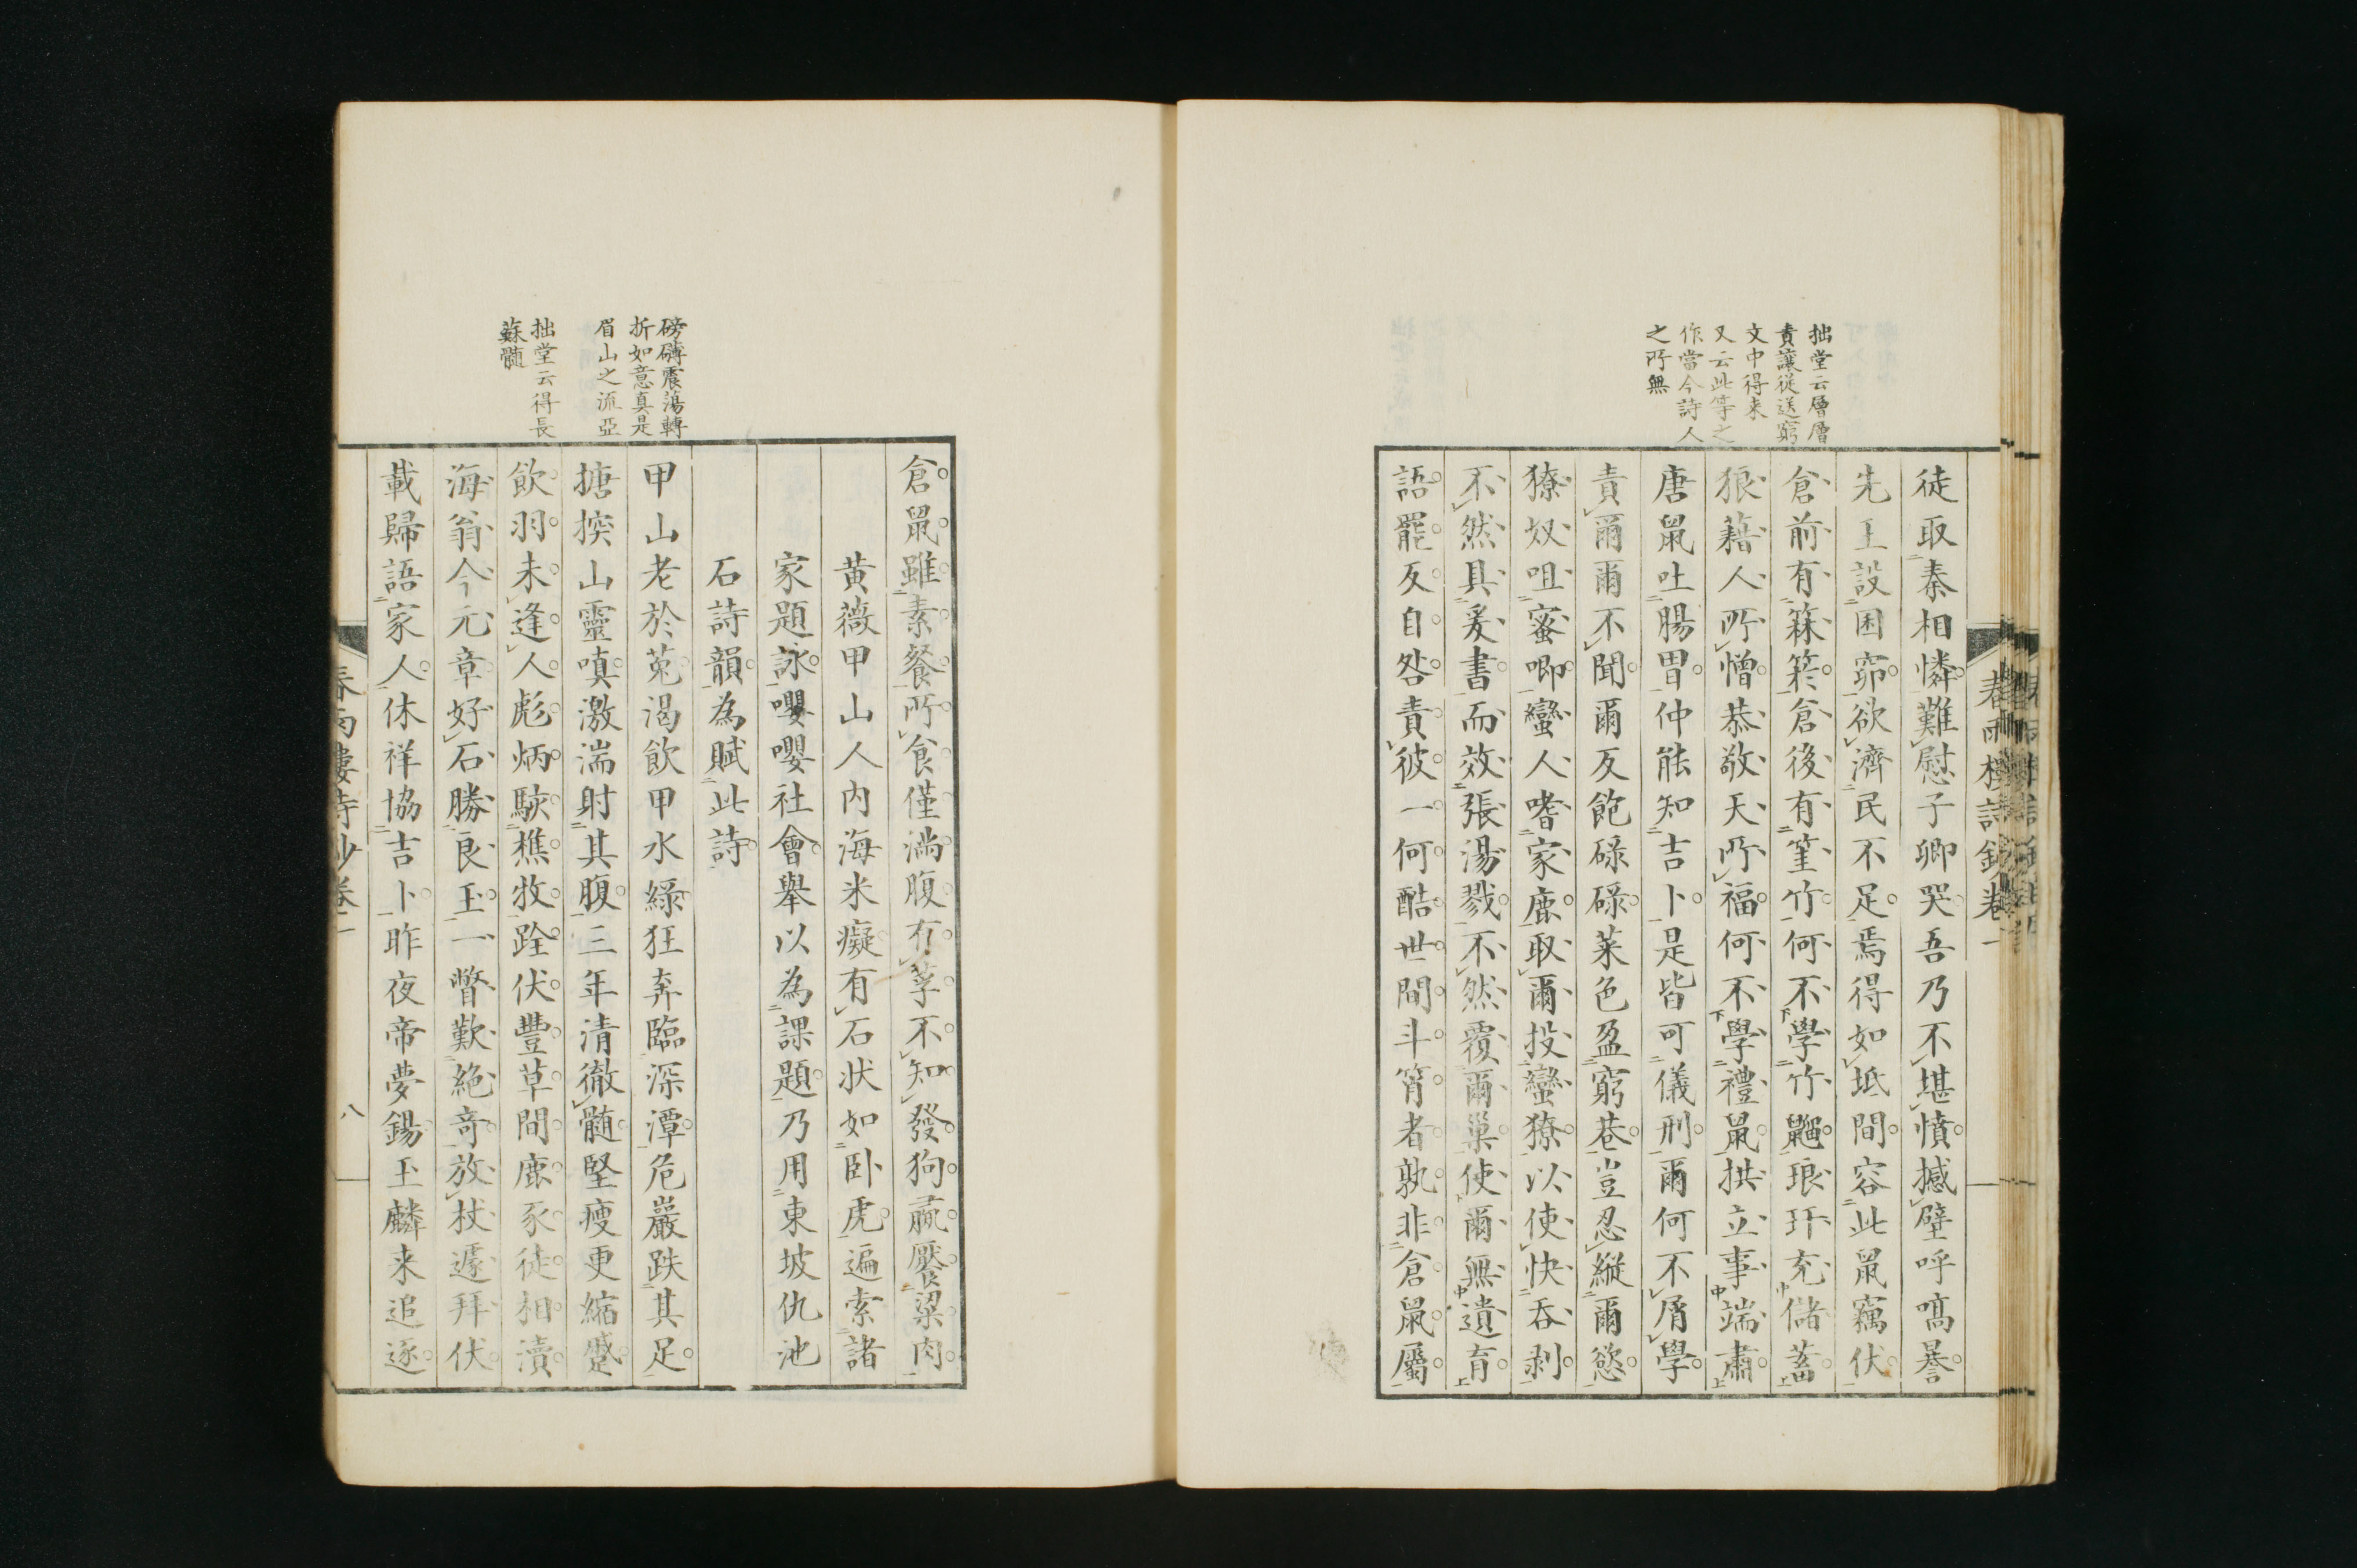 拙堂云層層
責讓從送窮
文中得来
又云此等之
作當今詩人
之所無
春雨樓詩鈔卷一
徒取秦相憐難慰子卿哭吾乃不堪憤撼壁呼噶暴
先王設囷窌欲濟民不足焉得如坻間容此鼠竊伏
倉前有箖箊倉後有篁竹何不學竹䶉琅玕充儲蓄
狼藉人所憎恭敬天所福何不學禮鼠拱立事端肅
唐鼠吐腸胃仲能知吉卜是皆可儀刑爾何不屑學
責爾爾不聞爾反飽碌碌菜色盈窮巷豈忍縱爾慾
獠奴咀蜜唧蠻人嗜家鹿取爾投蠻獠以使快吞剥
不然具爰書而效張湯戮不然覆爾巢使爾無遺育
語罷反自咎責彼一何酷世間斗筲者孰非倉鼠屬
磅礴震蕩轉
折如意真是
眉山之流亞
拙堂云得長
蘇髓
倉鼠雖素餐所食僅滿腹有莩不知發狗彘饜粱肉
黄薇甲山人内海米癡有石状如卧虎遍索諸
家題詠嚶嚶社會舉以為課題乃用東坡仇池
石詩韻為賦此詩
甲山老於菟渴飲甲水綠狂奔臨深潭危巖跌其足
搪揬山靈嗔激湍射其腹三年清徹髓堅瘦更縮蹙
飲羽未逢人彪炳駭樵牧跧伏豐草間鹿豕徒相瀆
海翁今元章好石勝良玉一瞥歎絶奇放杖遽拜伏
載歸語家人休祥協吉卜昨夜帝夢錫玉麟来追逐
春雨樓詩鈔卷一
八